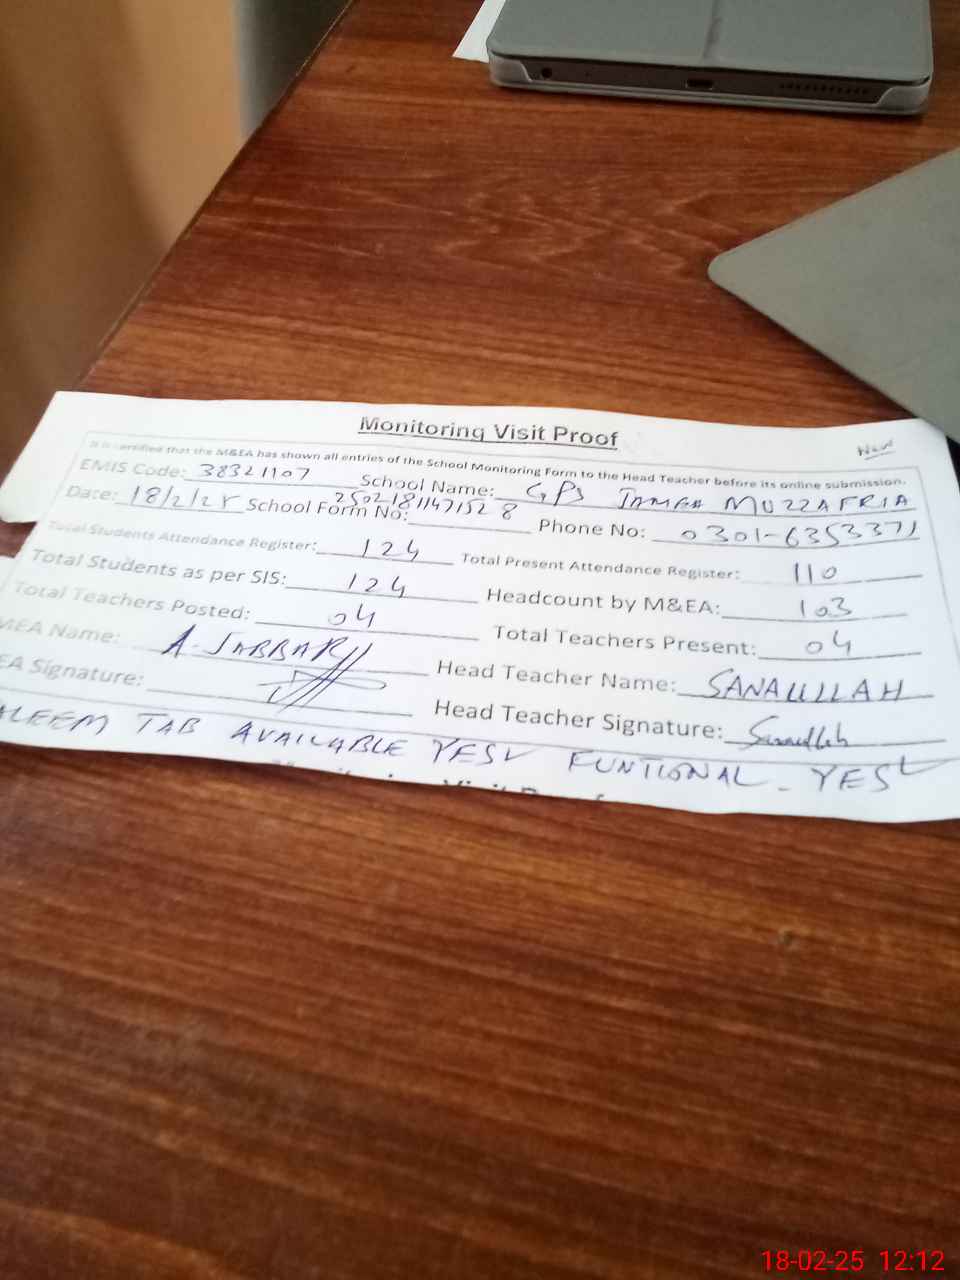 Monitoring Visit Proof
New
It is certified that the M&EA has shown all entries of the School Monitoring Form to the Head Teacher before its online submission.
EMIS Code: 38321107 School Name: GPS JAMEA MUZZAFRIA
Date: 18/2/25 School Form No: 2502181147152 8 Phone No: 0301-6353371
Total Students Attendance Register: 124 Total Present Attendance Register: 110
Total Students as per SIS: 124 Headcount by M&EA: 103
Total Teachers Posted: 04 Total Teachers Present: 04
MEA Name: A. JABBAR Head Teacher Name: SANAULLAH
EA Signature: Head Teacher Signature: Sanaullah
ALEEM TAB AVAILABLE YES FUNTIONAL - YES
18-02-25 12:12